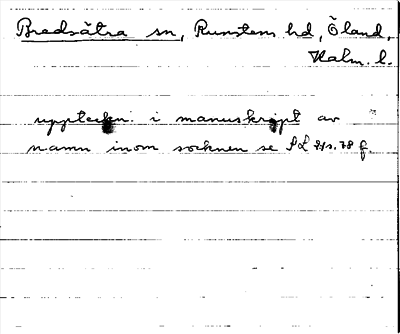 Bredsätra sn, Runstens hd, Öland,
Kalm. l.
uppteckn. i manuskript av
namn inom socknen se